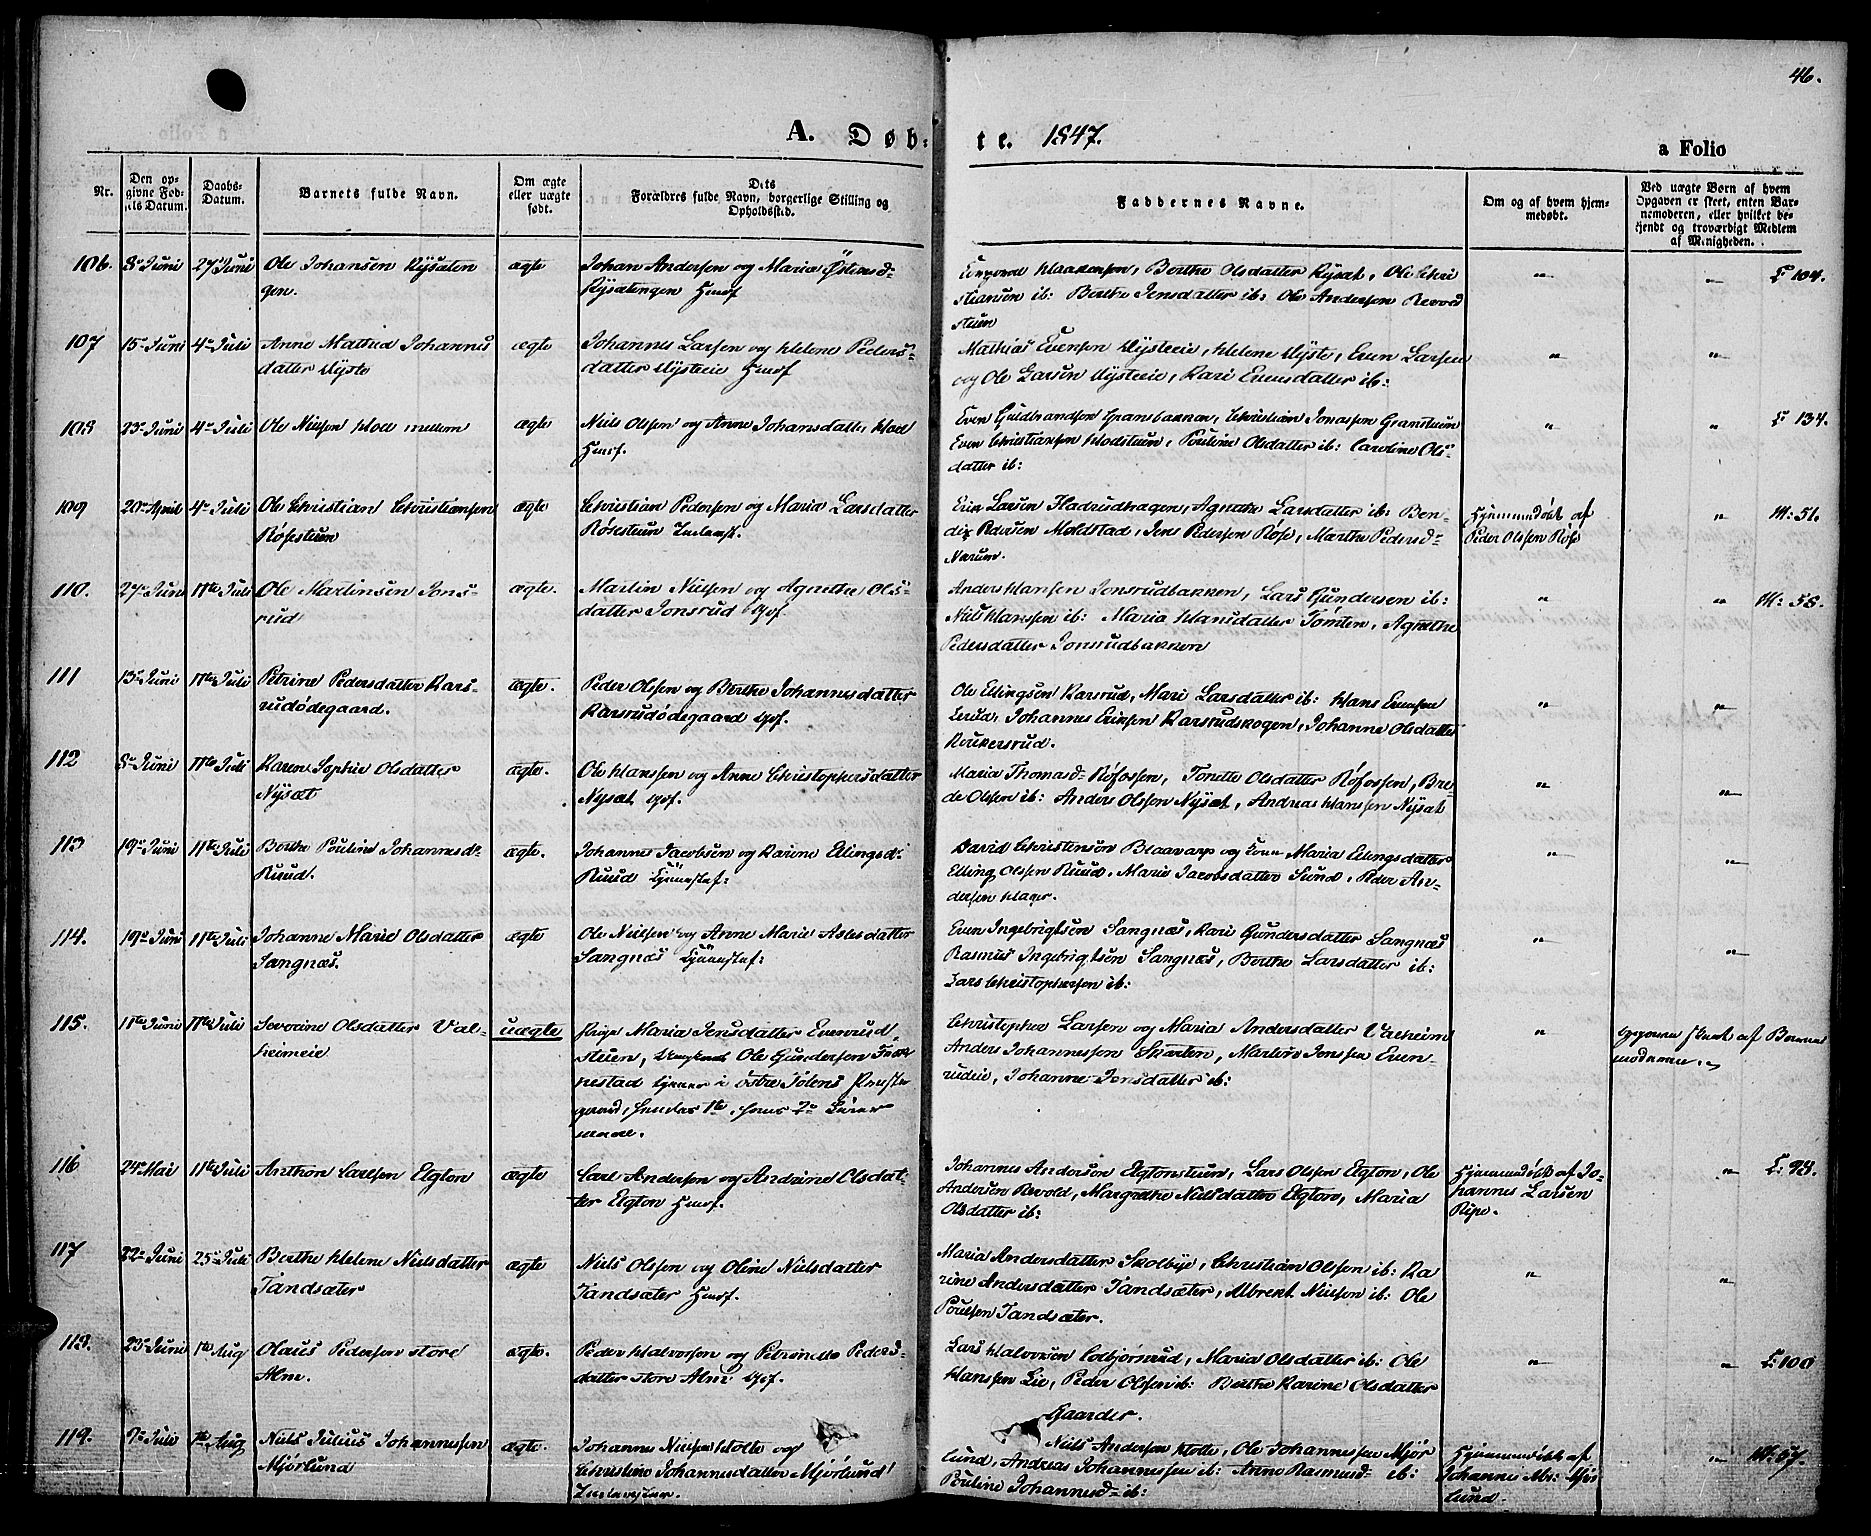 46.
A. Døb-
te. 1847.
a Folio
Nr.
Den op-
givne Fød-
sels Datum.
Daabs-
Datum.
Barnets fulde Navn.
Om ægte
eller uægte
født.
Dets
Forældres fulde Navn, borgerlige Stilling og
Opholdssted.
Faddernes Navne.
Om og af hvem hjem-
medøbt.
Ved uægte Børn af hvem
Opgaven er skeet, enten Bar-
nemoderen, eller hvilket be-
kjendt og troværdigt Medlem
af Menigheden.
106. 8de Juni 27de Juni Ole Johansen Rysæten
gen.
ægte
Johan Andersen og Maria Østensd-
Rysætengen Huusf
Haakensen, Berthe Olsdatter Rysæt, Ole Chri
stiansen ib: Berthe Jensdatter ib: Ole Andersen Revord
stuen
" " L: 104.
107 15de Juni 4de Juli Anne Mathea Johannes
datter Myste
ægte
Johannes Larsen og Helene Peders-
datter Mysteeie Huusf
Mathias Evensen Mysteeie, Helene Myste, Even Larsen
og Ole Larsen Mysteeie, Kari Evensdatter ib:
" "
108 23de Juni 4de Juli Ole Nielsen Hoel mellem
ægte
Niels Olsen og Anne Johansdatter Hoel
Huusf.
Even Guldbrandsen Gransbakken, Christian Jonassen Gramstuen
Even Christiansen Hoelstuen, Pouline Olsdatter ib: Caroline Ols-
datter ib:
" " L: 134.
109 20de April 4de Juli Ole Christian Christiansen
Røisestuen
ægte
Christian Pedersen og Maria Larsdatter
Røisestuen Inderst.
Larsen Hadrudhagen, Agnethe Larsdatter ib: Ben-
dix Pedersen Moldstad, Jens Pedersen Røise, Marthe Pedersd-
Narum.
Hjemmedøbt af
Peder Olssen Røise
" M: 51.
110. 27de Juni 11te Juli Ole Martinsen Jons-
rud
ægte.
Martin Nielsen og Agnethe Ols-
datter Jonsrud Gf.
Anders Hansen Jonsrudbakken, Lars Gundersen ib:
Niels Hanssen ib: Maria Hansdatter Tømten, Agnethe
Pedersdatter Jonsrudbakken
" " M: 58.
111 13de Juni 11te Juli Petrine Pedersdatter Kars-
rudødegaard.
ægte.
Peder Olssen og Berthe Johannesdatter
Karsrudødegaard Gf.
Ole Ellingsen Karsrud, Mari Larsdatter ib: Hans Evensen
Lerud, Johannes Eriksen Karsrudskogen, Johanne Olsdatter
Koukersrud.
" "
112 8de Juni 11te Juli Karen Sophie Olsdatter
Nysæt
ægte.
Ole Hanssen og Anne Christophersdatter
Nysæt Gf.
Maria Thomasd- Røfossen, Tonette Olsdatter Røfossen, Bre-
de Olssen ib: Anders Olssen Nysæt, Andreas Hanssen Nysæt
" "
113 19de Juni 11te Juli Berthe Pouline Johannesd-
Ruud.
ægte.
Johannes Jacobsen og Karine Ellingsd-
Ruud
David Christensen Blaavarp og Kone Maria Ellingsdatter
Elling Olssen Ruud, Marie Jacobsdatter Sund, Peder An-
dersen Hager.
" "
114. 19de Juni 11te Juli Johanne Marie Olsdatter
Sangnæs.
ægte
Ole Nielsen og Anne Marie Aslesdatter
Sangnæs
Even Ingebrigtsen Sangnæs, Kari Gundersdatter Sangnæs
Rasmus Ingebrigtsen Sangnæs, Berthe Larsdatter ib:
Lars Christophersen ib:
" "
115. 11te Juni 11te Juli Severine Olsdatter Val-
heimeie
uægte
Pige Maria Jensdatter Evenrud
stuen, Ungkarl Ole Gundersen
nestad tjener i østre Tolens Præste
gaard, hendes 1te, hans 2de Leier
maal.
Christopher Larsen og Maria Andersdatter Valheim
Anders Johannessen Skarten, Martin Jonssen Even-
rudeie, Johanne Jensdatter ib:
"
Opgaven skeet af Barne
moderen.
116 24de Mai 11te Juli Anthon Carlsen Elgton
ægte
Carl Andersen og Andrine Olsdat-
ter Elgton Huusf.
Johannes Andersen Elgtonstuen, Lars Olsen Elgton, Ole
Andersen Revold, Margrethe Nielsdatter Elgton, Maria
Olsdatter ib:
Hjemmedøbt af Jo-
hannes Larsen
Ripe.
" L: 98.
117 22de Juni 25de Juli Berthe Helene Nielsdatter
Tandsæter
ægte
Niels Olssen og Oline Nielsdatter
Tandsæter Huusf.
Maria Andersdatter Skolbye, Christian Olssen ib: Ka
rine Andersdatter Tandsæter, Albrekt Nielsen ib: Ole
Poulsen Tandsæter.
" "
118. 23de Juni 1te Aug Olaus Pedersen store
Alm.
ægte.
Peder Halvorsen og Petronelle Peders-
datter store Alm Gf.
Lars Halvorsen Colbjørnrud, Maria Olsdatter ib: Ole
Hanssen Lie, Peder Olssen ib: Berthe Karine Olsdatter
Gaarder.
" " L: 100
119. 7de Juli 1te Aug Niels Julius Johannessen
Mjørlund
ægte.
Johannes Nielsen Holte og
Christine Johannesdatter Mjørlund
Niels Andersen Holte, Ole Johannessen Mjør
lund, Andreas Johannessen ib: Anne Rasmusd- ib:
Pouline Johannesd- ib:
Hjemmedøbt af
Johannes Mjør
lund.
" M: 57.